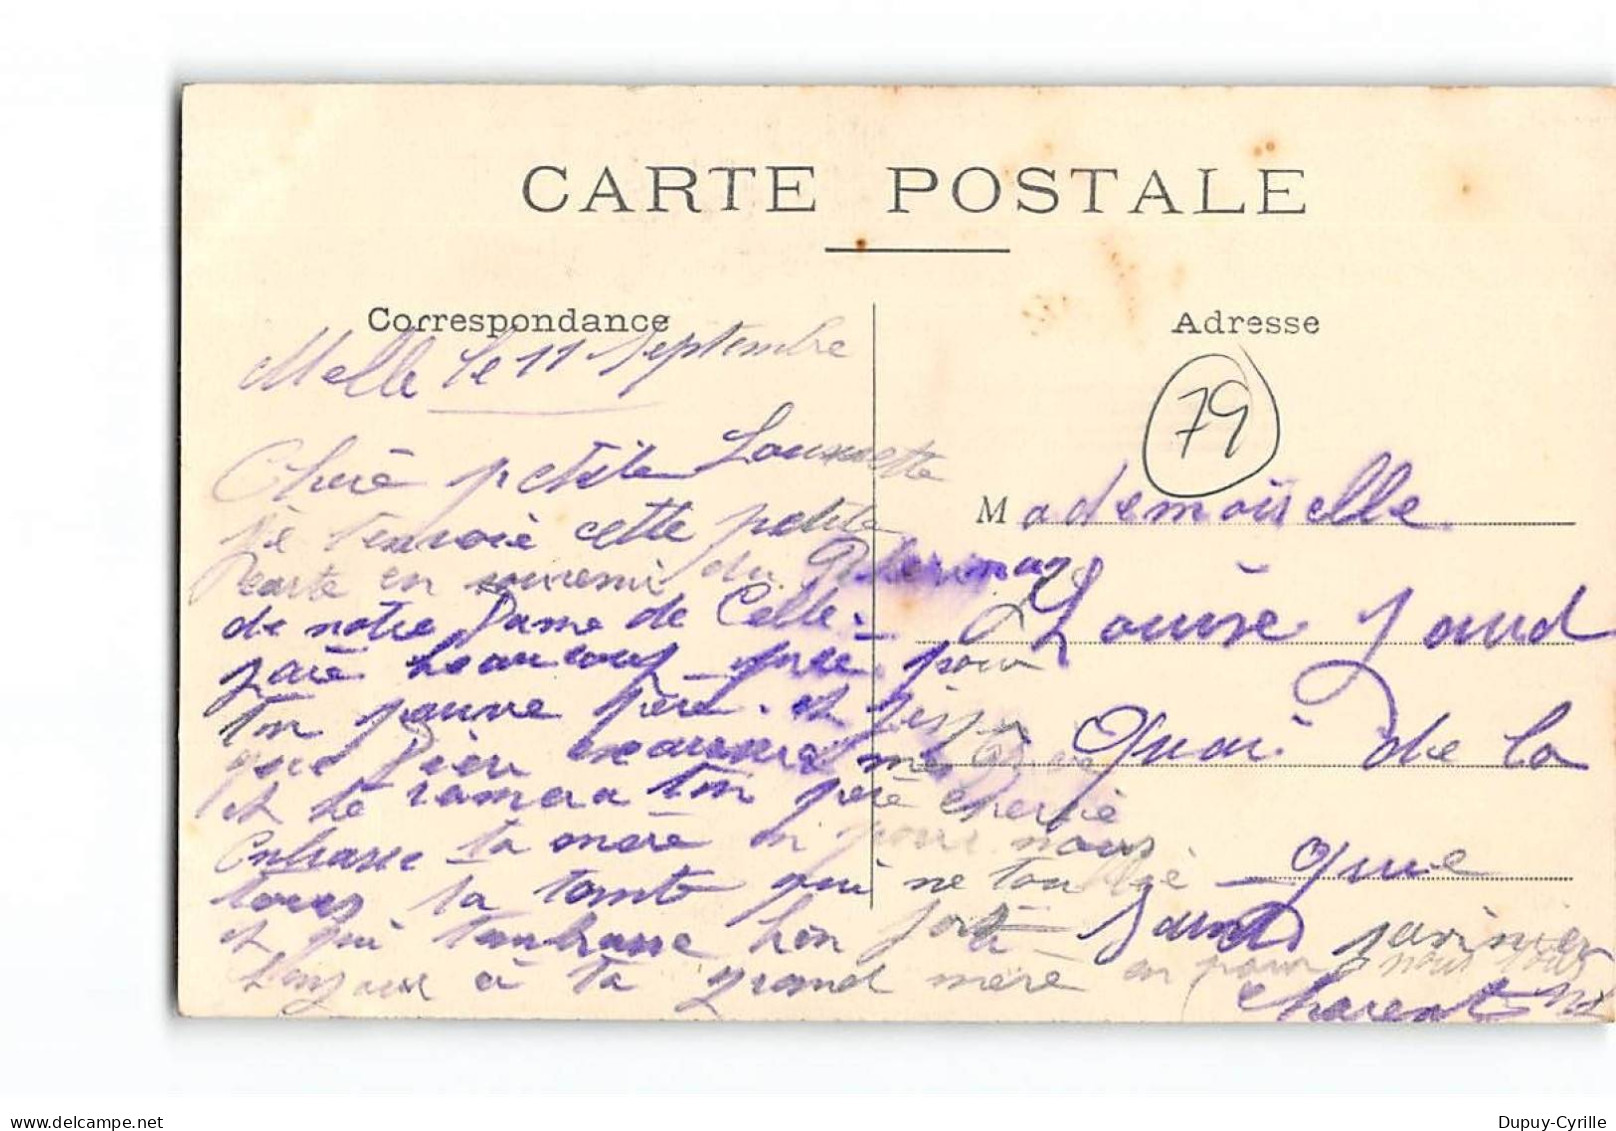 CARTE POSTALE
Correspondance
Melle le 11 Septembre
Chère petite Louisette
je t'envoie cette petite
carte en souvenir du
de notre Dame de Celle.
prie beaucoup pour
ton pauvre père. et
que Dieu
et te ramera ton père cherie
Enbrasse ta mère en pour nous
tous ta tante qui ne t'ou
et qui t'enbrasse bien fort
bonjour à ta grand mère en pour nous tous
Adresse
79
Mademoiselle
Louise Jaud
Quai de la
Saint Savinien
Charente
delcampe.net
Dupuy-Cyrille